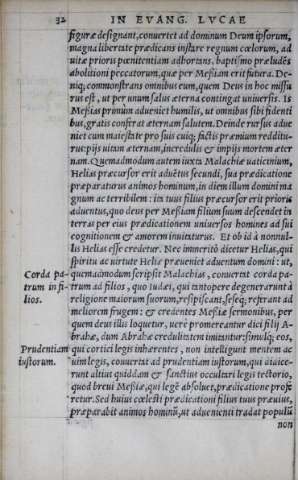 32 IN EVANG. LVCAE
figuræ designant, convertet ad dominum Deum ipsorum,
magna libertate prædicans instare regnum cœlorum, ad
vitæ prioris pœnitentiam adhortans, baptismo præludēs
abolitioni peccatorum, quæ per Meßiam erit futura. De-
niq; commonstrans omnibus eum, quem Deus in hoc missu
rus est, ut per unum salus æterna contingat universis. Is
Meßias primùm adveniet humilis, ut omnibus sibi fidenti
bus, gratis conferat æternam salutem. Deinde rursus adve
niet cum maiestate pro suis cuiq; factis præmium redditu-
rus: piis vitam æternam, incredulis & impijs mortem æter
nam. Quemadmodum autem iuxta Malachiæ vaticinium,
Helias præcursor erit adūētus secundi, sua prædicatione
præparaturus animos hominum, in diem illum domini ma
gnum ac terribilem: ita tuus filius præcursor erit prioris
adventus, quo deus per Meßiam filium suum descendet in
terras per eius prædicationem universos homines ad sui
cognitionem & amorem invitaturus. Et ob id à nonnul-
lis Helias esse credetur. Nec immeritò dicetur Helias, qui
spiritu ac virtute Heliæ præveniet adventum domini: ut,
Corda pa- quemadmodum scripsit Malachias, convertat corda pa-
trum in fi- trum ad filios, quo Iudæi, qui tantopere degenerarunt à
lios. religione maiorum suorum, resipiscant, seseq; referant ad
meliorem frugem: & credentes Meßiæ sermonibus, per
quem deus illis loquetur, verè promereantur dici filij A-
brahæ, dum Abrahæ credulitatem imitentur: simulq; eos,
Prudentiam qui cortici legis inhærentes, non intelligunt mentem ac
iustorum. vim legis, convertat ad prudentiam iustorum, qui
runt altius quiddam & sanctius occultari legis tectorio,
quod brevi Meßiæ, qui legē absoluet, prædicatione profe
retur. Sed huius cœlesti prædicationi filius tuus præuius,
præparabit animos hominū, ut advenienti tradat populū
non